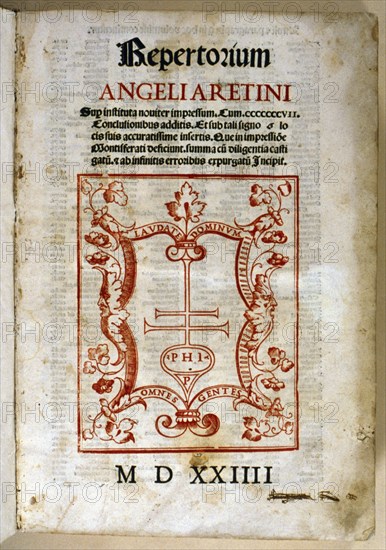 Repertorium
ANGELI ARETINI
Sup instituta noviter impressum. Cum. CCCCCCCVII.
Conclusionibus additis. Et sub tali signo lo
cis suis accuratissime insertis. Que in impressiõe
Montisferati deficiunt. summa cũ diligentia casti
gatũ. et ab infinitis erroribus expurgatũ Incipit.
LAUDATE DOMINUM
·PHI·
P
OMNES GENTES
M D XXIIII